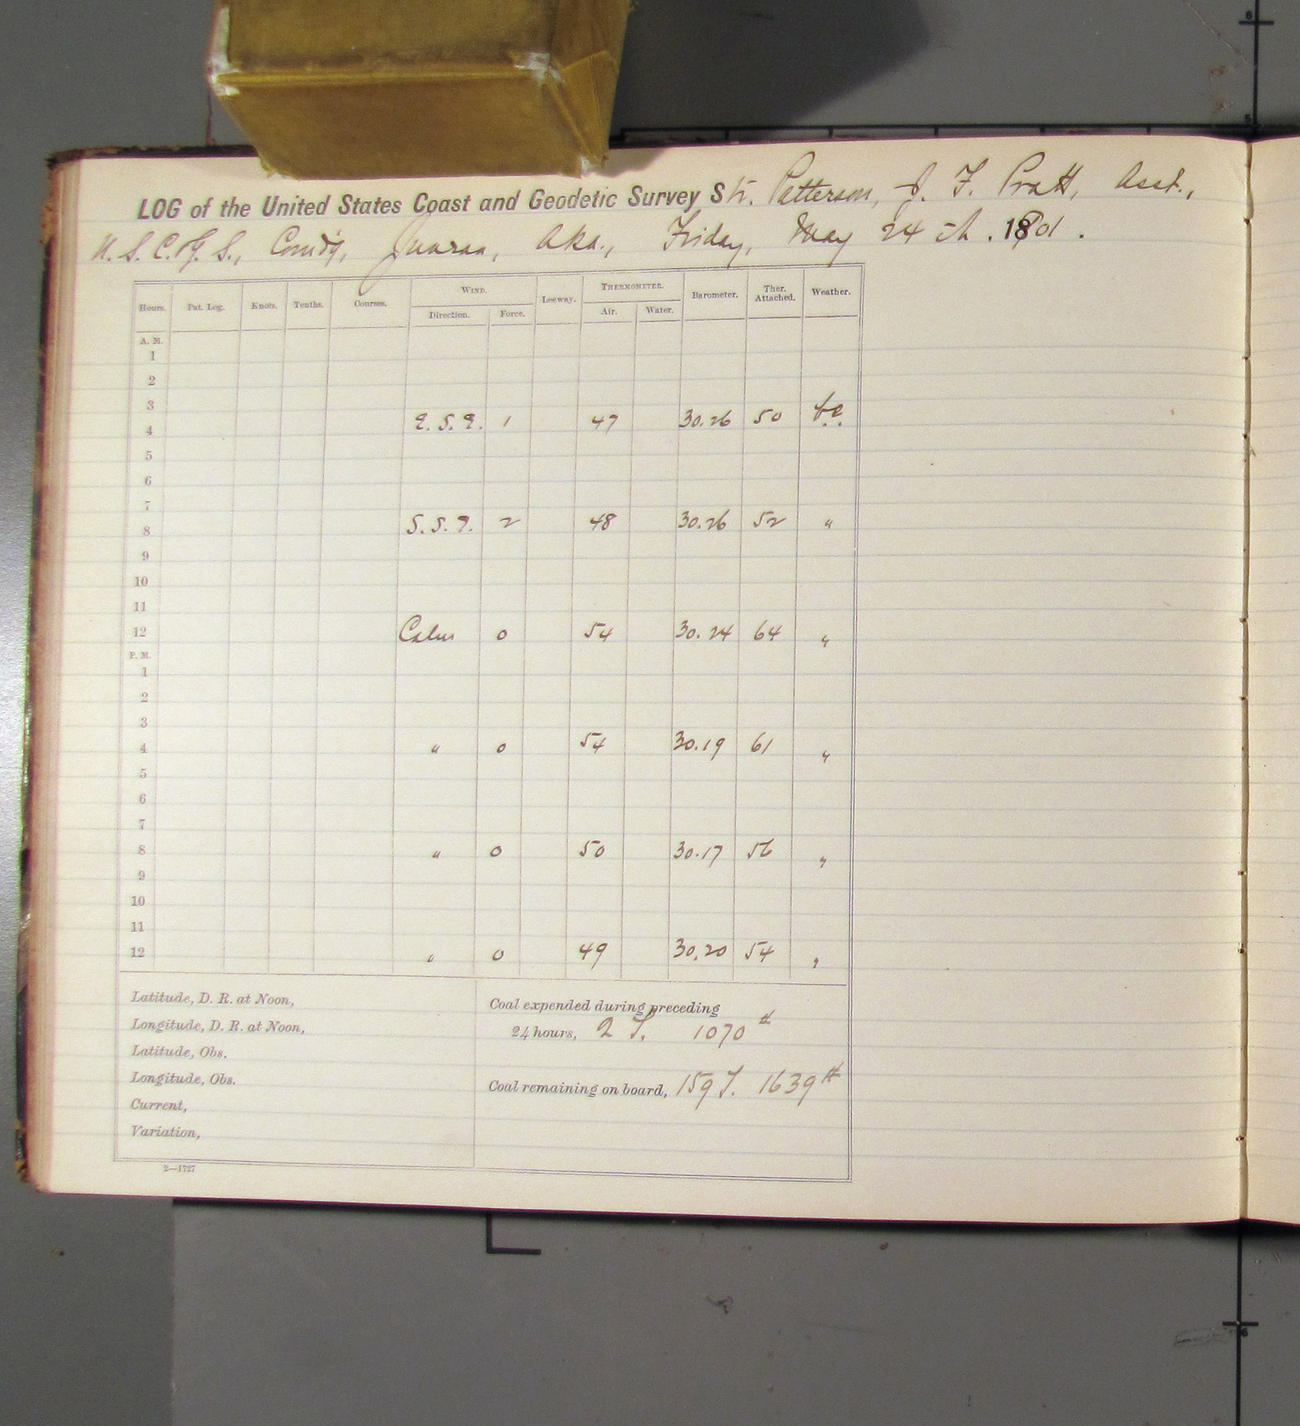 LOG of the United States Coast and Geodetic Survey Str. Patterson, J. F. Pratt, Asst.,
U. S. C. & G. S., Comd'g, Juneau, Aka., Friday, May 24th. 1901.
Hours. Pat. Log. Knots. Tenths. Courses. WIND. Leeway. THERMOMETER. Barometer. Ther. Attached. Weather.
Direction. Force. Air. Water.
A. M.
1
2
3
4 E. S. E. 1 47 30.26 50 b.c.
5
6
7
8 S. S. E. 2 48 30.26 52 "
9
10
11
12 Calm 0 54 30.24 64 "
P. M.
1
2
3
4 " 0 54 30.19 61 "
5
6
7
8 " 0 50 30.17 56 "
9
10
11
12 " 0 49 30.20 54 "
Latitude, D. R. at Noon,
Longitude, D. R. at Noon,
Latitude, Obs.
Longitude, Obs.
Current,
Variation,
Coal expended during preceding
24 hours, 2 T. 1070 #
Coal remaining on board, 159 T. 1639 #
2—1727